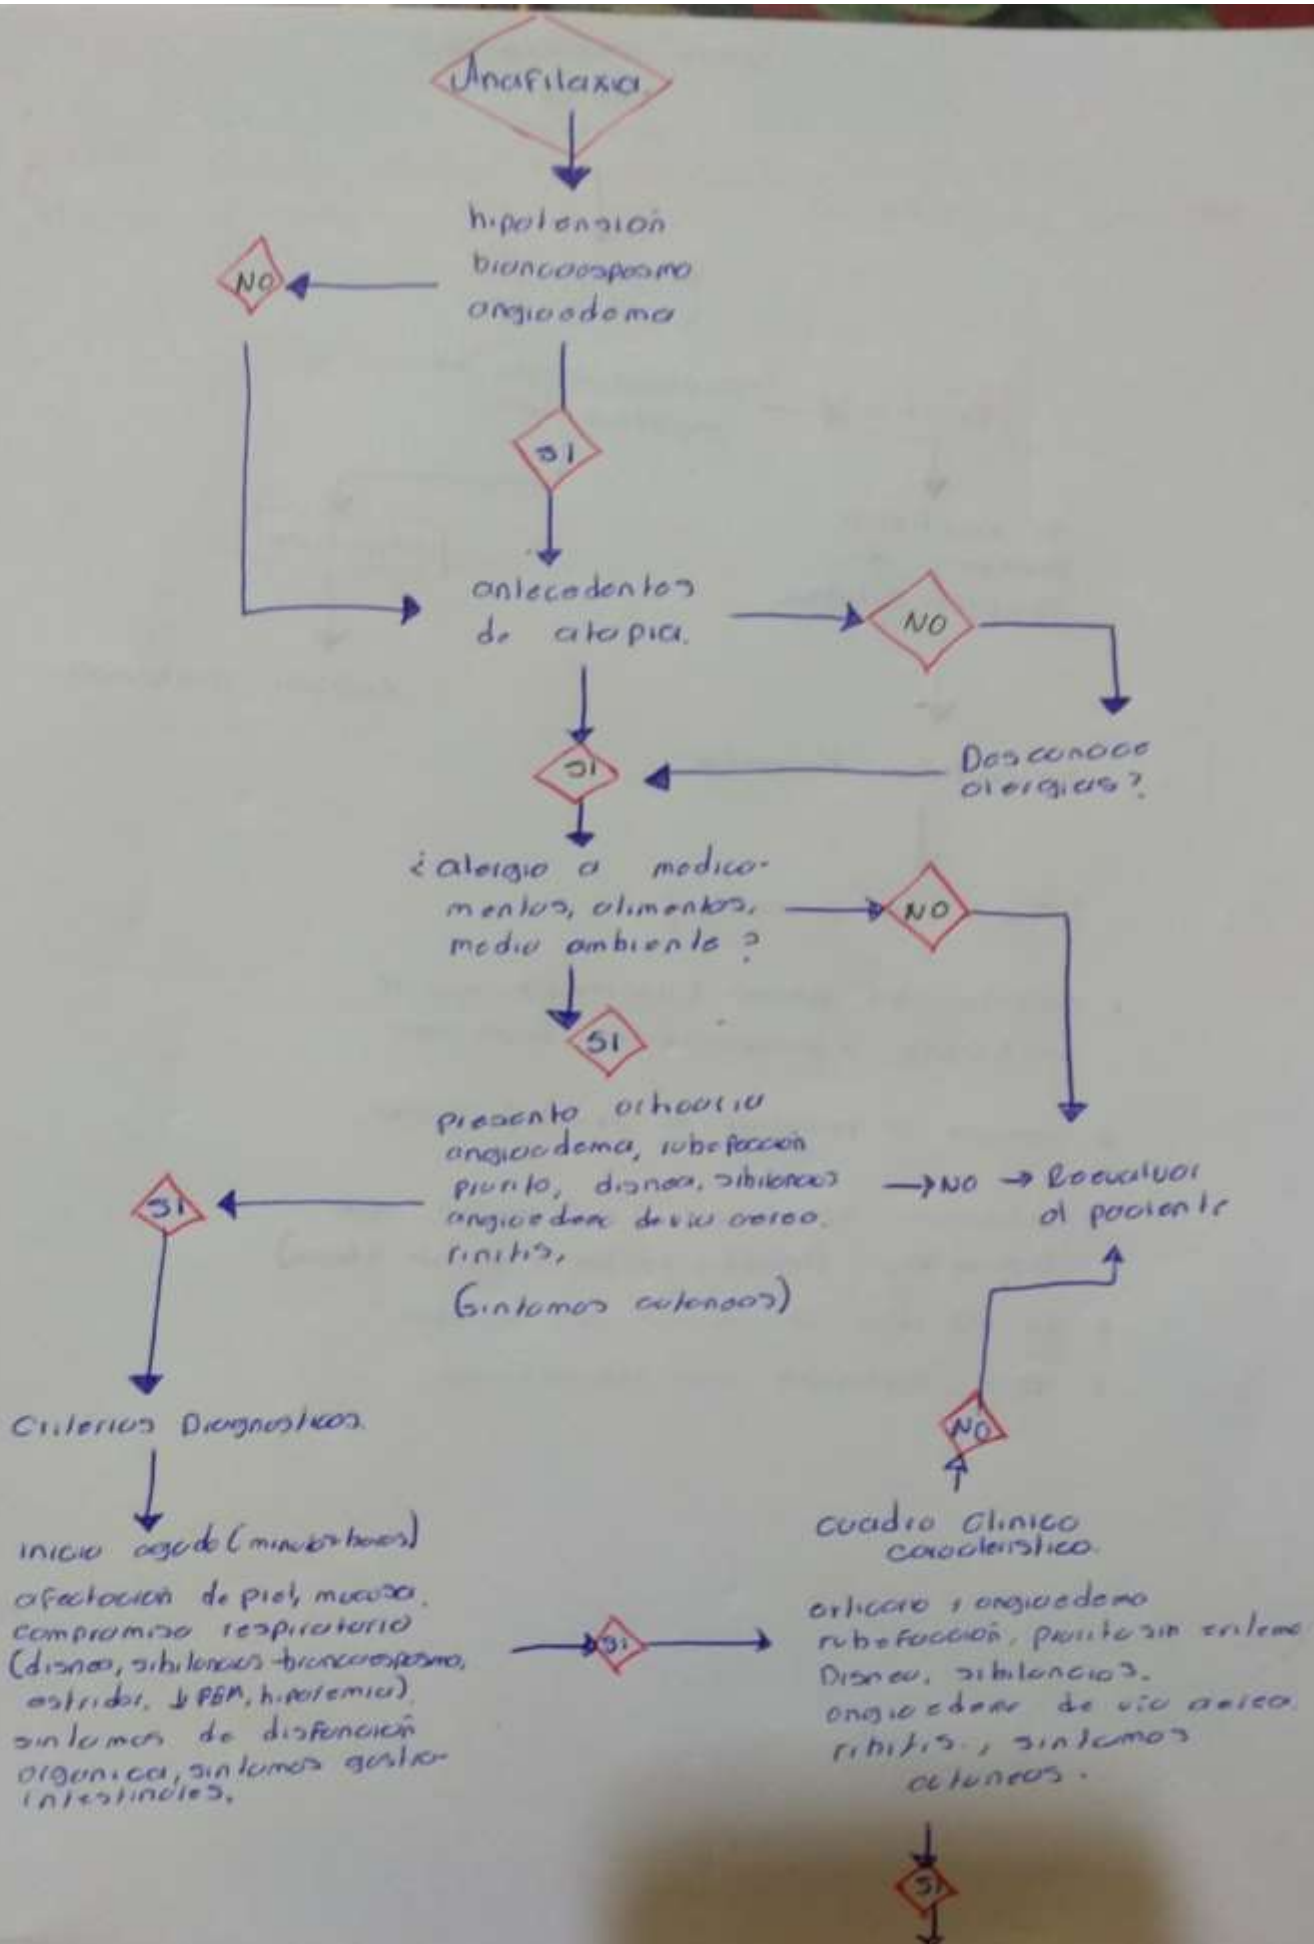 Anafilaxia.
hipotensión
broncoospasmo
angioedema
NO
SI
antecedentes
de atopia.
NO
SI
Desconoce
alergias?
¿alergia a medica-
mentos, alimentos,
medio ambiente?
NO
SI
presento
angioedema, rubefacción
prurito, disnea, sibilancias
angioedema de via aerea.
rinitis,
(sintomas cutaneos)
SI
NO
Reevaluar
al paciente
Criterios Diagnosticos.
NO
inicio agudo (minutos-horas)
afectación de piel, mucosa.
compromiso respiratorio
(disnea, sibilancias-broncoespasmo,
estridor, ↓ PEM, hipoxemia)
sintomas de disfunción
organica, sintomas gastro-
intestinales.
SI
cuadro Clinico
caracteristico.
urticaria, angioedema
rubefacción, prurito sin eritema
Disnea, sibilancias.
angioedema de via aerea.
rinitis., sintomas
cutaneos.
SI